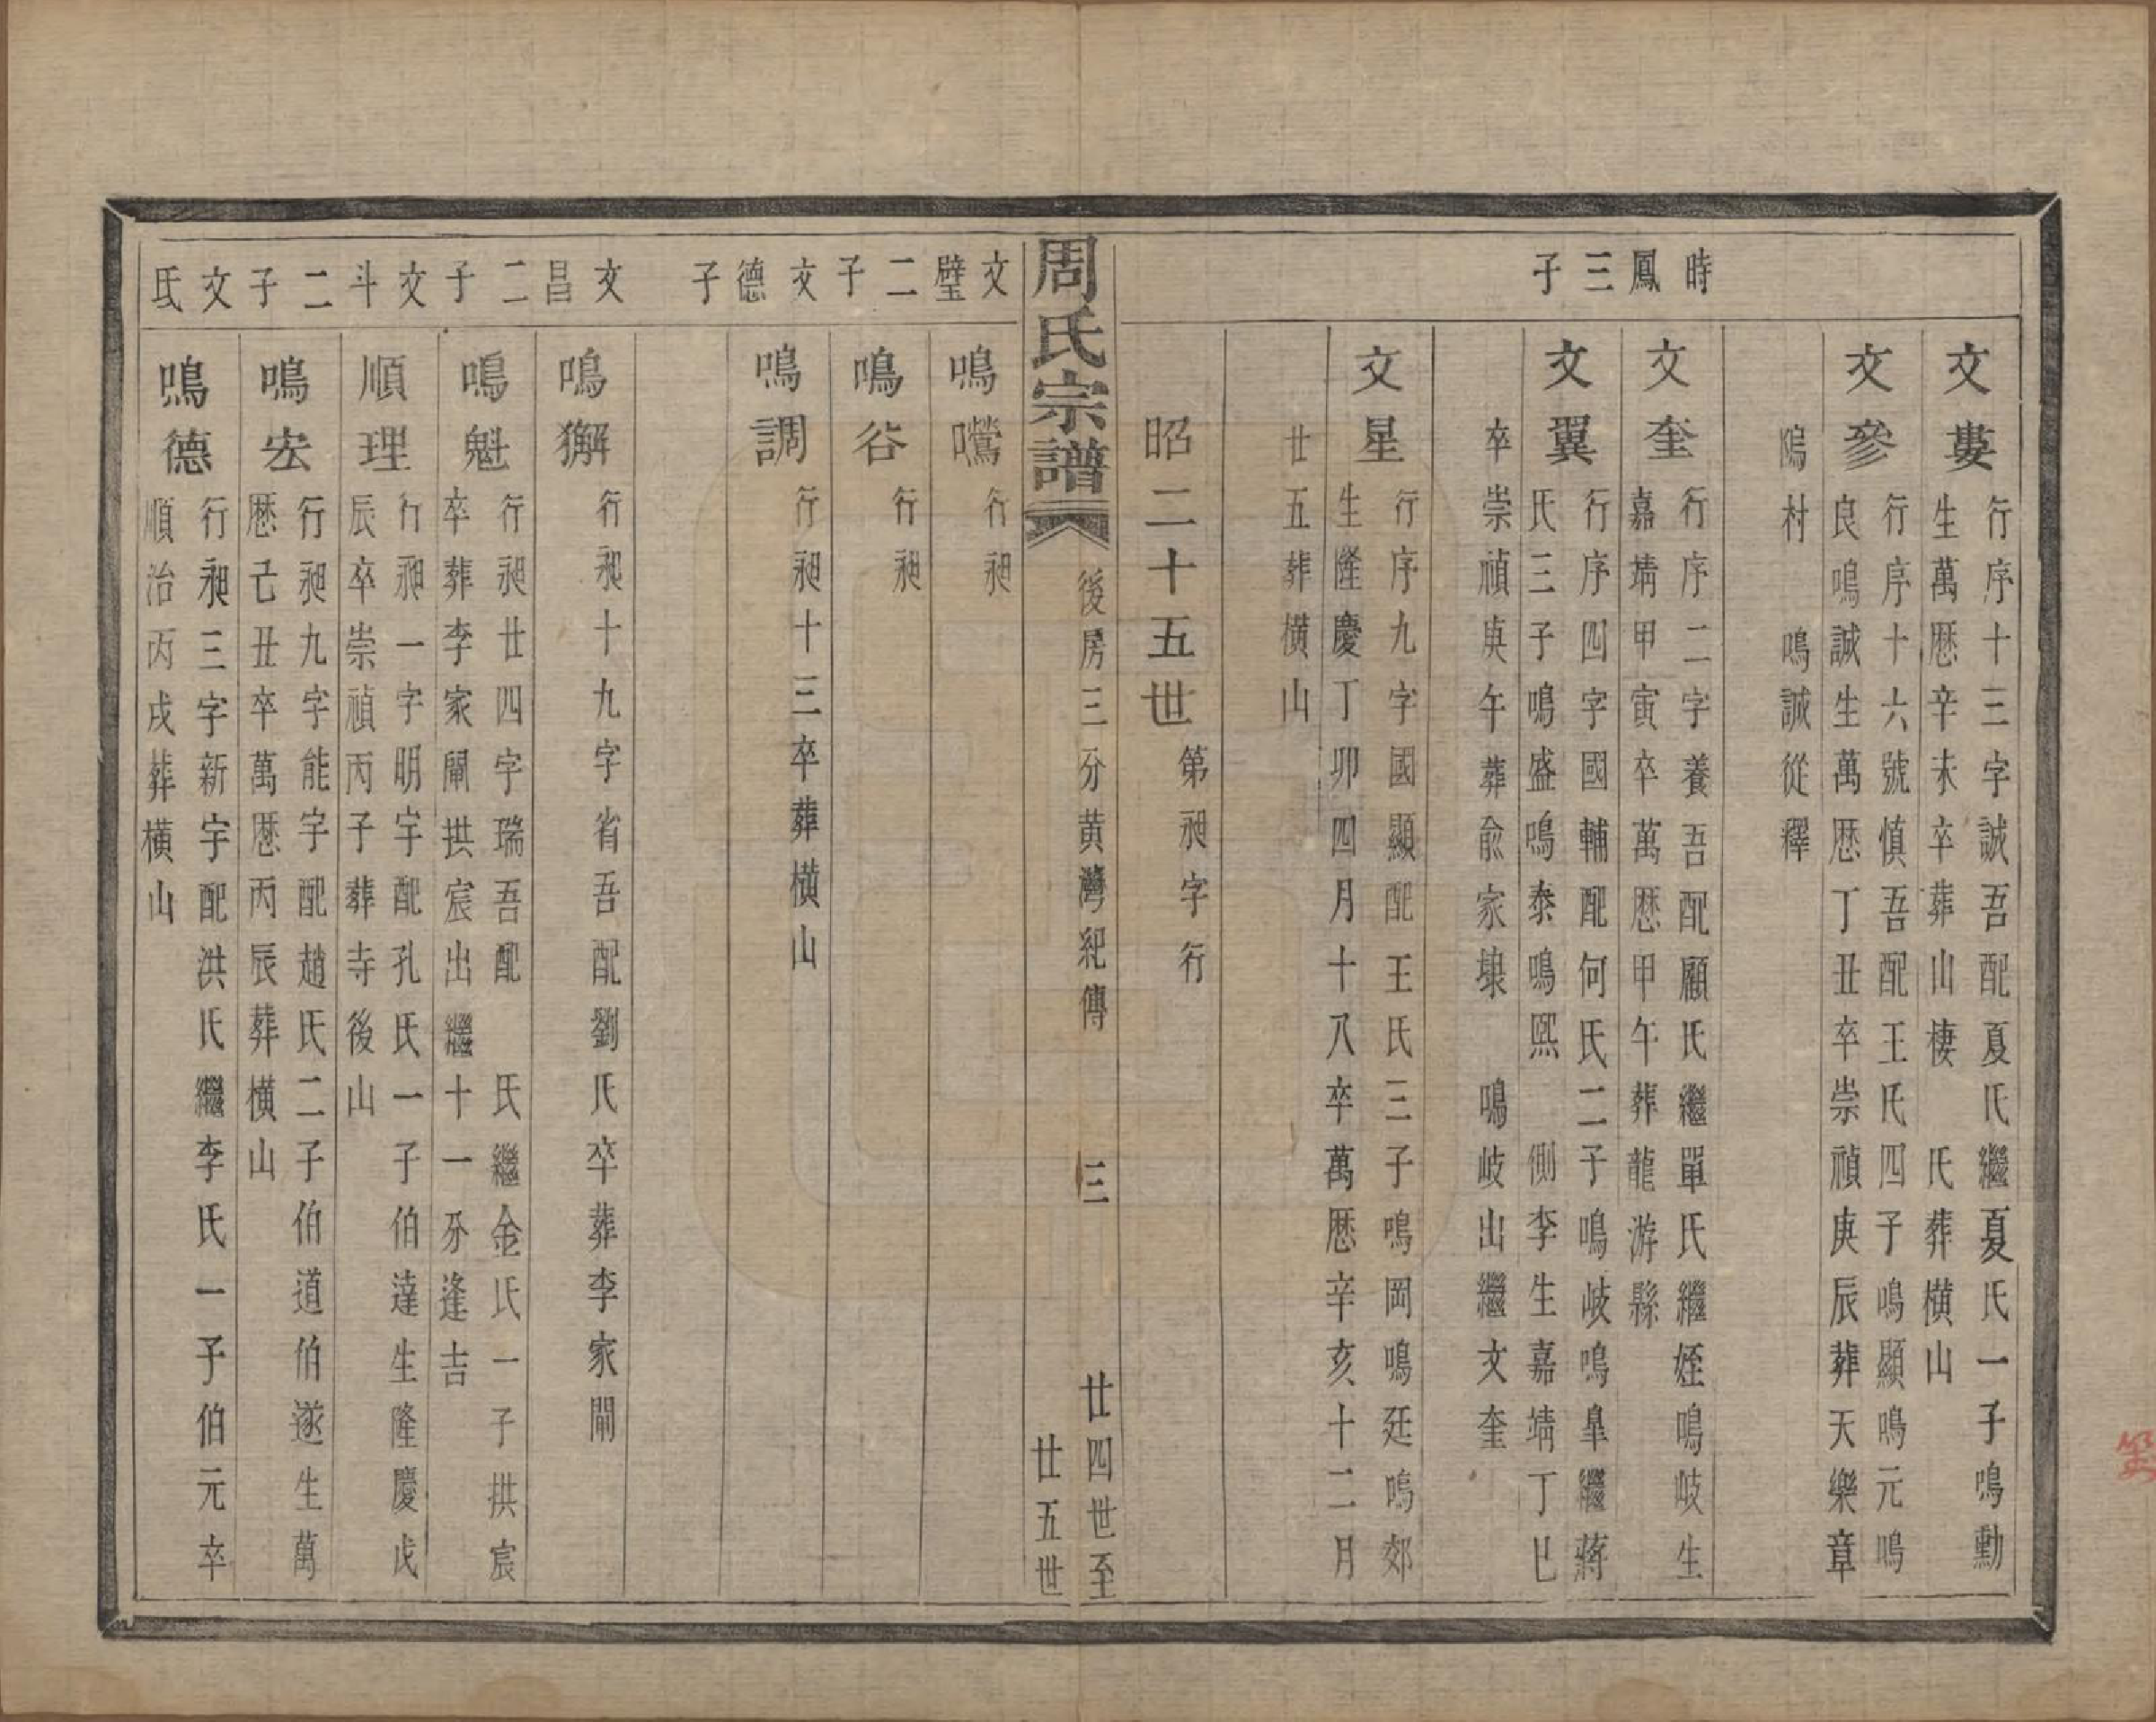 文婁
行序十三字誠吾配夏氏繼夏氏一子鳴勳
生萬厯辛未卒葬山棲　氏葬橫山
文參
行序十六號慎吾配王氏四子鳴顯鳴元鳴
良鳴誠生萬厯丁丑卒崇禎庚辰葬天樂章
塢村　鳴誠從釋
時鳳三子
文奎
行序二字養吾配顧氏繼單氏繼姪鳴岐生
嘉靖甲寅卒萬厯甲午葬龍游縣
文翼
行序四字國輔配何氏二子鳴岐鳴臯繼蔣
氏三子鳴盛鳴泰鳴熙　側李生嘉靖丁巳
卒崇禎庚午葬俞家埭　鳴岐出繼文奎
文星
行序九字國顯配王氏三子鳴岡鳴廷鳴郊
生隆慶丁卯四月十八卒萬厯辛亥十二月
廿五葬橫山
昭二十五世　第昶字行
周氏宗譜
後房三分黃灣紀傳　三　廿四世至
廿五世
文璧二子
鳴鸎
行昶
鳴谷
行昶
文德子
鳴調
行昶十三卒葬橫山
文昌二子
鳴獬
行昶十九字省吾配劉氏卒葬李家閘
鳴魁
行昶廿四字瑞吾配　氏繼金氏一子拱宸
卒葬李家閘拱宸出繼十一分逢吉
文斗二子
順理
行昶一字明宇配孔氏一子伯達生隆慶戊
辰卒崇禎丙子葬寺後山
鳴宏
行昶九字能宇配趙氏二子伯道伯遂生萬
厯己丑卒萬厯丙辰葬橫山
文氐
鳴德
行昶三字新宇配洪氏繼李氏一子伯元卒
順治丙戌葬橫山